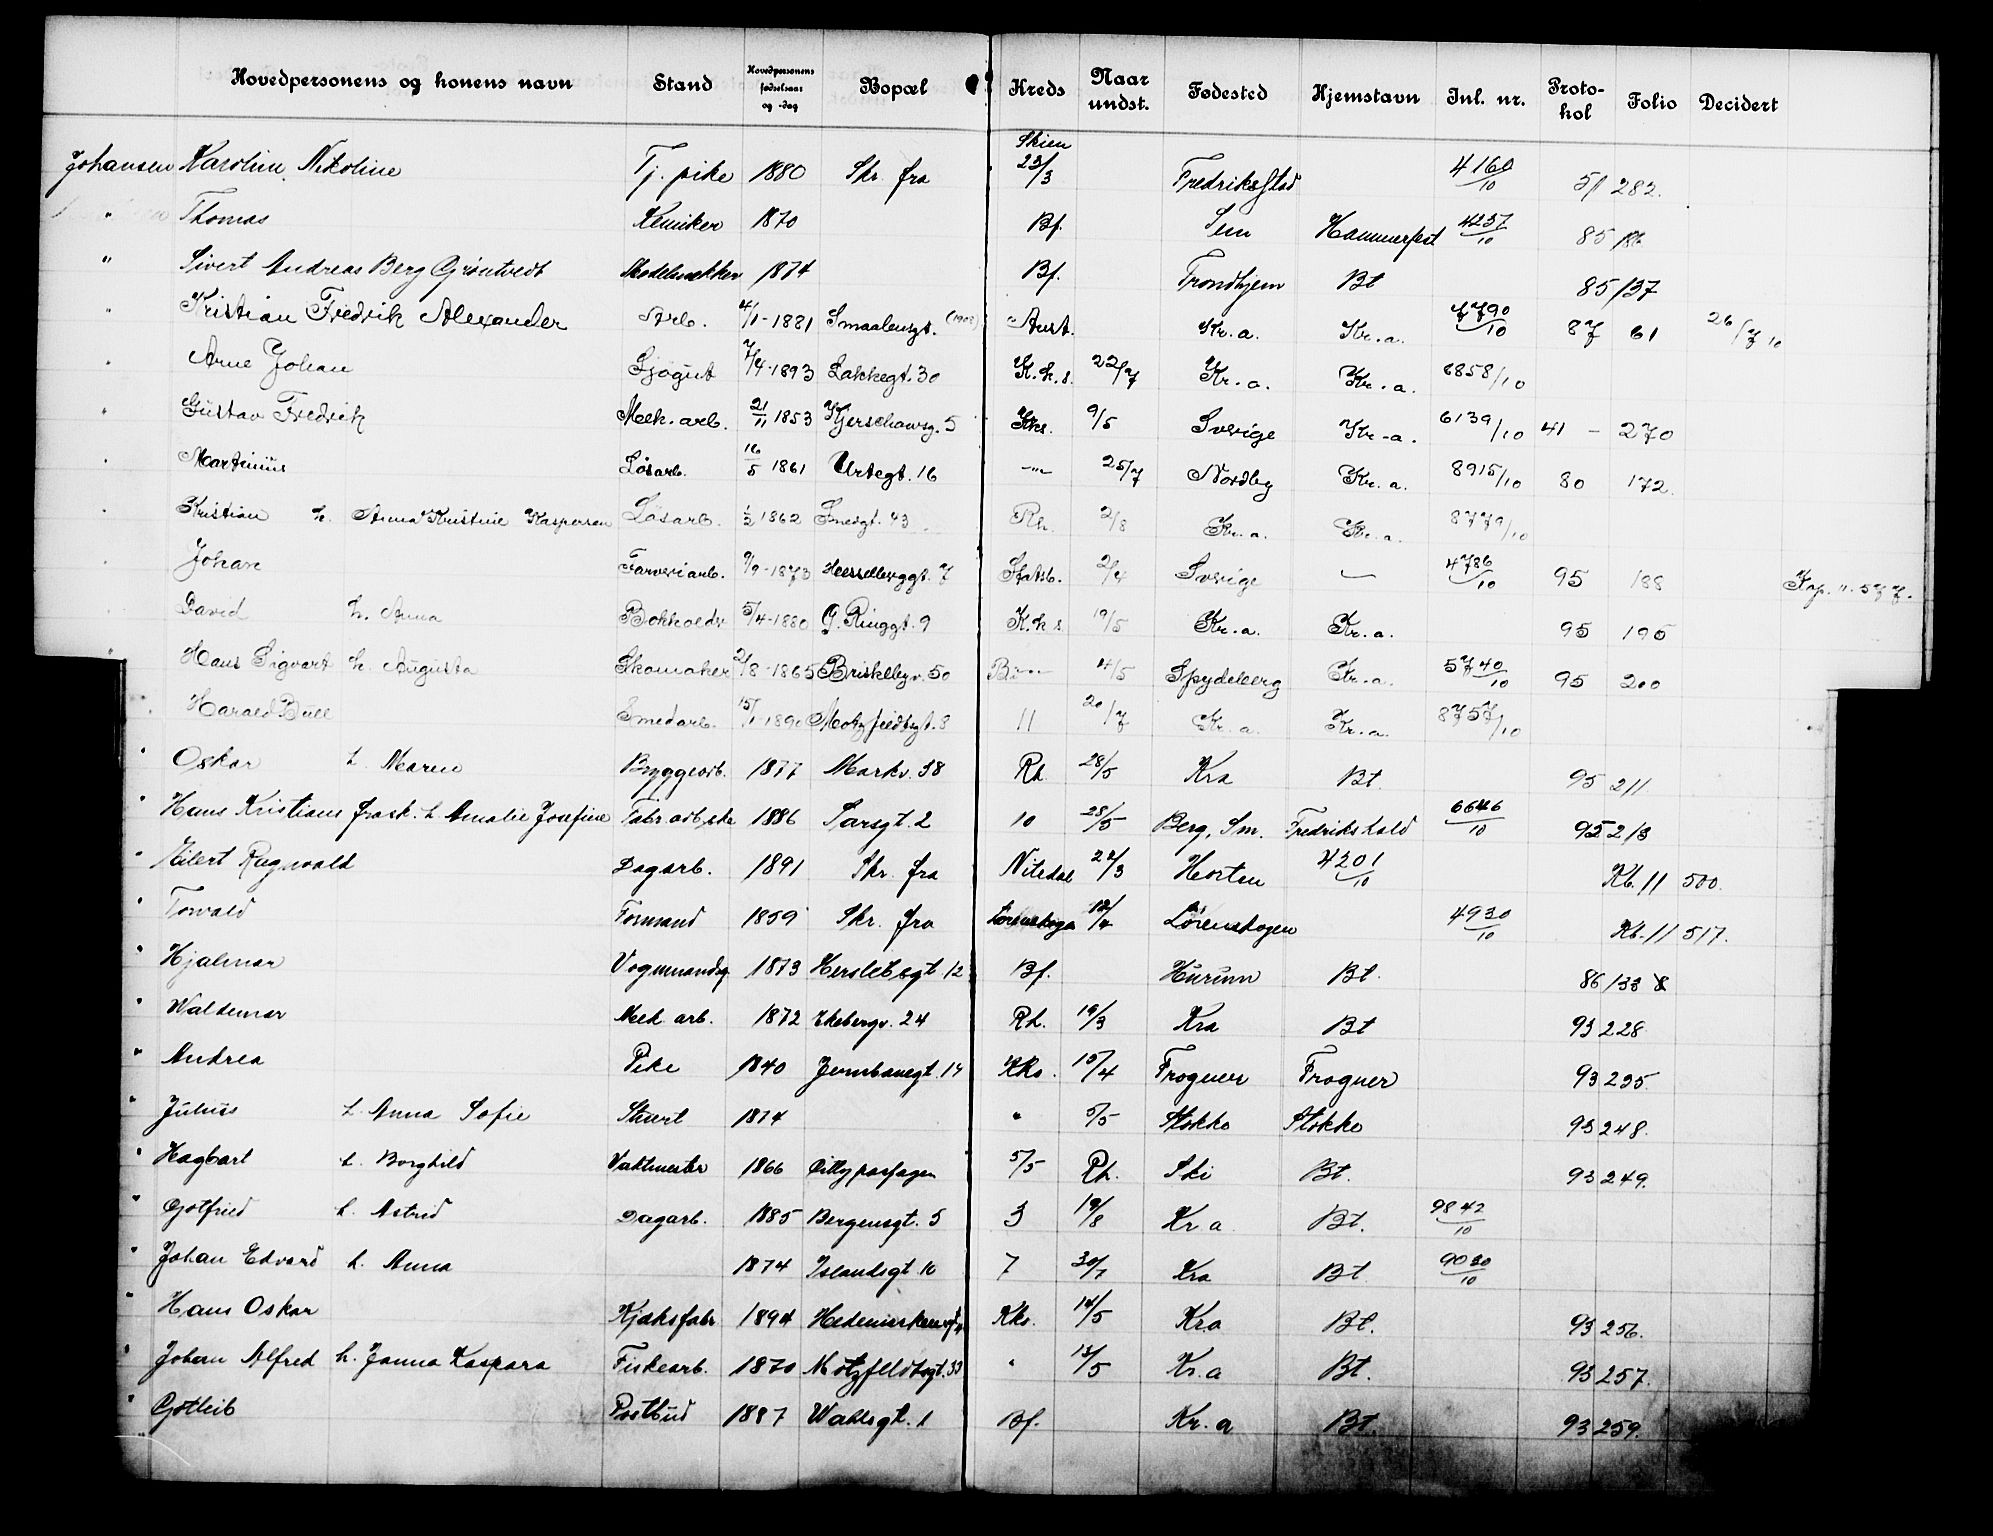 Hovedpersonens og konens navn Stand Hovedpersonens fødselsaar og -dag Bopæl Kreds Naar undst. Fødested Hjemstavn Inl. nr. Protokol Folio Decidert
Johansen Karoline Nikoline Tj. pike 1880 Skr. fra Skien 23/3 Fredriksstad 4160/10 51 282.
" Thomas Kemiker 1870 Bf. Sem Hammerfest 4237/10 85
" Sivert Andreas Berg Grøntvedt Modelsnekker 1874 Bf. Trondhjem Bt 85 137
" Kristian Fredrik Alexander Arb. 4/1-1881 Smaalensgt. (1908) Aust. Kr.a. Kr.a. 7790/10 87 61 26/7 10
" Arne Johan Sjøgut 7/4-1893 Lakkegt. 30 K.k.s. 22/7 Kr.a. Kr.a. 8858/10
" Gustav Fredrik Mek. arb. 21/11 1853 Kjerschowsg. 5 Kks. 9/5 Sverige Kr-a. 6139/10 41 - 270
" Martinius Løsarb. 16/5 1861 Urtegt. 16 -"- 25/7 Nordby Kr.a. 8915/10 80 172.
" Kristian h. Anna Kristine Kaspersen Løsarb. 1/2 1862 Smedgt. 43 Rh. 2/8 Kr.a. Kr.a. 8779/10
" Johan Farveriarb. 9/9-1873 Hesselberggt. 7 2/4 Sverige — 4786/10 95 188 Kop. 11. 577.
" David h. Anna Bokholder 5/4-1880 G. Ringgt. 9 K.k.s. 19/5 Kr.a. Kr.a. 95 195
" Hans Sigvart h. Augusta Skomaker 2/8-1865 Briskebyv. 50 4/5 Spydeberg Kr.a. 5740/10 95 200
" Harald Bull Smedarb. 15/1-1890 Motzfeldtsgt. 8 11 20/7 Kr.a. Kr.a. 8757/10
" Oskar h. Maren Byggearb. 1877 Markv. 38 Rh 28/5 Kra Bt. 95 211
" Hans Kristians frask. h. Amalie Josefine Fabr arbske 1886 Sarsgt. 2 10 28/5 Berg, Sm. Fredrikshald 6646/10 95 213
" Eilert Ragnvald Dagarb. 1891 Skr. fra Nitedal 22/3 Horten 4201/10 Kb. 11 500.
" Torvald Formand 1859 Skr. fra Lørenskogen 12/4 Lørenskogen 4930/10 Kb. 11 517.
" Hjalmar Vognmandsg 1873 Herslebsgt. 12 Bf. Hurum Bt. 86 133
" Waldemar Mek arb. 1872 Ekebergv. 24 Rh. 19/3 Kra Bt 93 228
" Andrea Pike 1840 Jernbanegt. 14 KKs. 15/4 Frogner Frogner 93 235.
" Julius h. Anna Sofie Stuert 1874 " 5/5 Stokke Stokke 93 248.
" Hagbart h. Borghild Vaktmester 1866 Citypassagen 5/5 Rh. Ski Bt. 93 249.
" Gotfried h. Astrid Dagarb. 1885 Bergensgt. 5 3 19/8 Kr a. Bt. 9842/10
" Johan Edvard h. Anna 1874 Islandsgt. 10 7 30/7 Kra Bt 9030/10
" Hans Oskar Kjæksfabr 1894 Kks. 14/5 Kra Bt. 93 256.
" Johan Alfred h. Janna Kaspara Fiskearb. 1870 Motzfeldtsgt. 33 " 13/5 Kr.a Bt. 93 257.
" Gotleib Postbud 1887 Wahlsgt. 1 Bf. Kr. a Bt. 93 259.